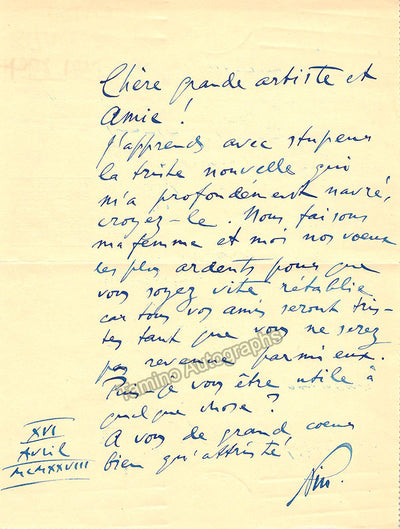 Chère grande artiste et
Amie!
J'apprends avec stupeur
la triste nouvelle qui
m'a profondément navré,
croyez-le. Nous faisons
ma femme et moi nos voeux
les plus ardents pour que
vous soyez vite, rétablie
car tous vos amis seront tris-
tes tant que vous ne serez
pas revenue parmi eux.
Puis-je vous être utile à
quelque chose?
A vous de grand coeur
bien qu'attristé,
XVI
Avril
MCMXXVIII
Tamino Autographs